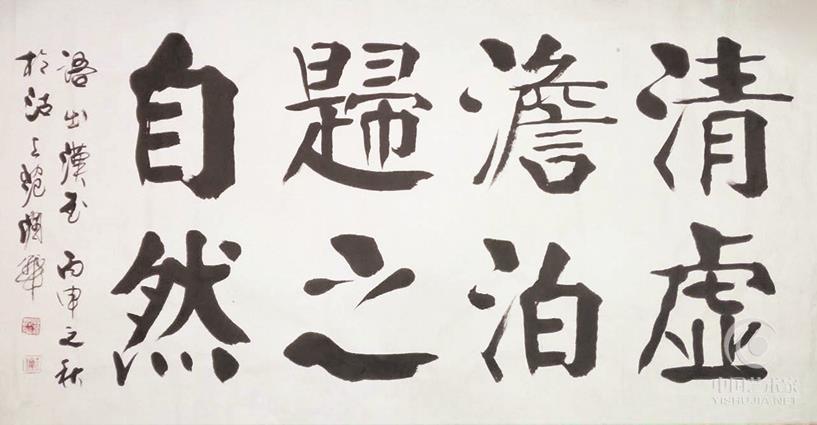 清虚
澹泊
歸之
自然
语出漢书 丙申之秋
於沽上
中国艺术家
YISHUJIA.NET